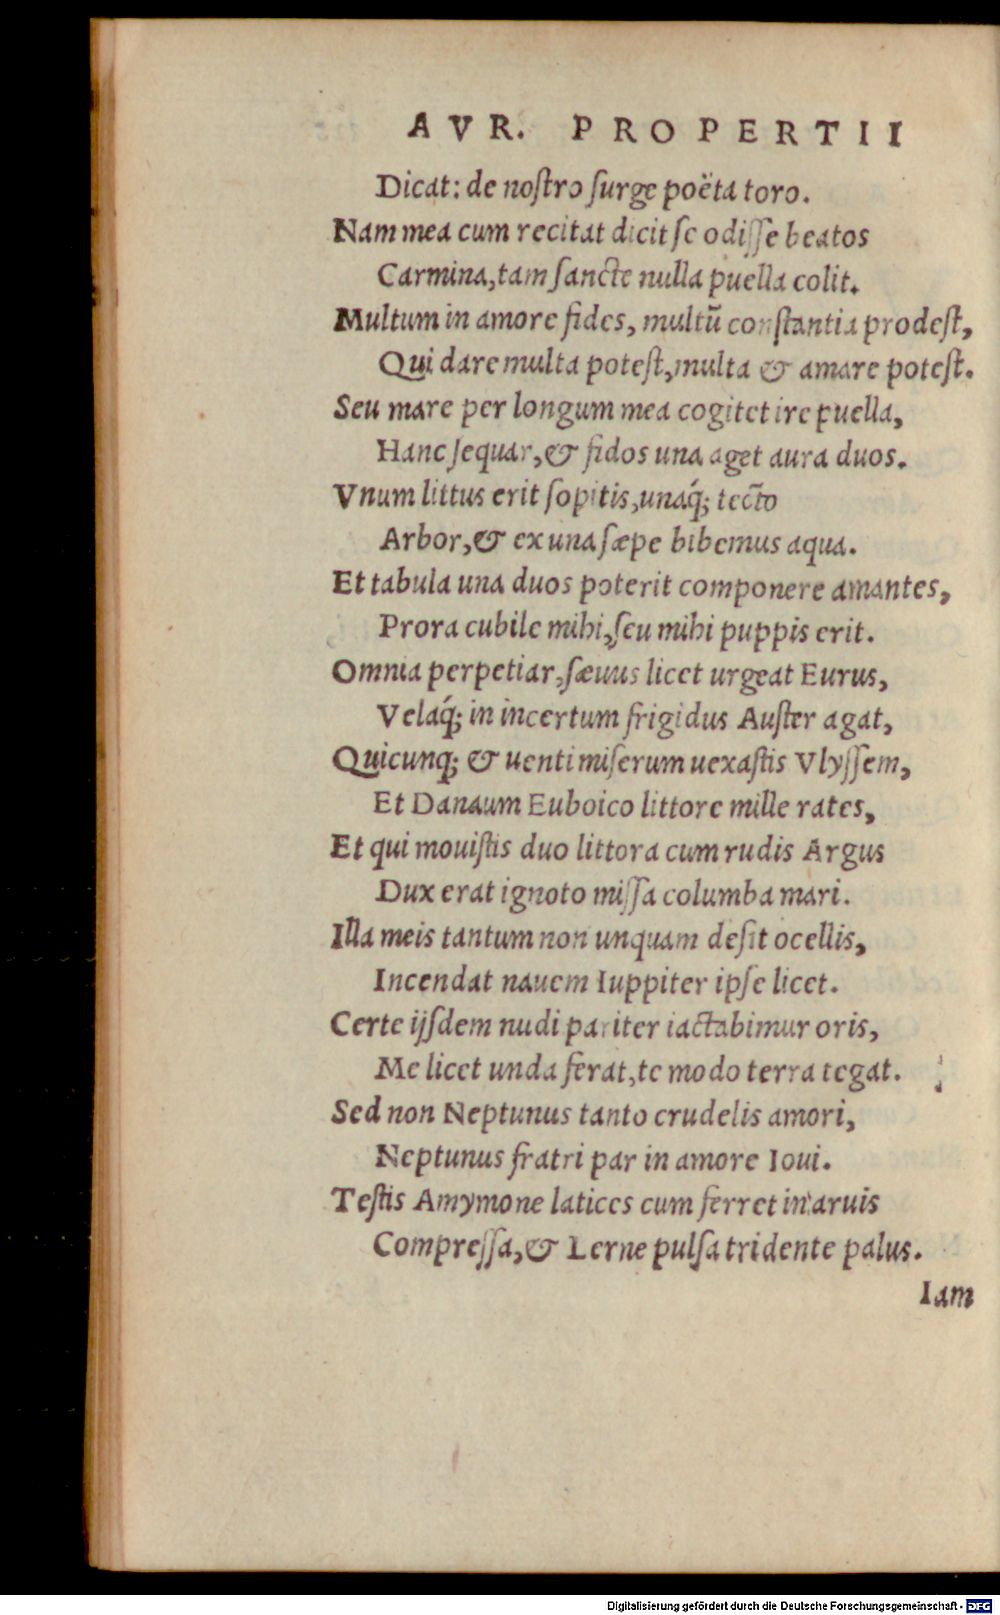 AVR. PROPERTII
Dicat: de noſtro ſurge poëta toro.
Nam mea cum recitat dicit ſe odiſſe beatos
Carmina, tam ſancte nulla puella colit.
Multum in amore fides, multū conſtantia prodeſt,
Qui dare multa poteſt, multa & amare poteſt.
Seu mare per longum mea cogitet ire puella,
Hanc ſequar, & fidos una aget aura duos.
Vnum littus erit ſopitis, unaq́; tecto
Arbor, & ex una ſæpe bibemus aqua.
Et tabula una duos poterit componere amantes,
Prora cubile mihi, ſeu mihi puppis erit.
Omnia perpetiar, ſæuus licet urgeat Eurus,
Velaq́; in incertum frigidus Auſter agat,
Quicunq; & uenti miſerum uexaſtis Vlyſſem,
Et Danaum Euboico littore mille rates,
Et qui mouiſtis duo littora cum rudis Argus
Dux erat ignoto miſſa columba mari.
Illa meis tantum non unquam deſit ocellis,
Incendat nauem Iuppiter ipſe licet.
Certe ijſdem nudi pariter iactabimur oris,
Me licet unda ferat, te modo terra tegat.
Sed non Neptunus tanto crudelis amori,
Neptunus fratri par in amore Ioui.
Teſtis Amymone latices cum ferret in aruis
Compreſſa, & Lerne pulſa tridente palus.
Iam
Digitalisierung gefördert durch die Deutsche Forschungsgemeinschaft - DFG